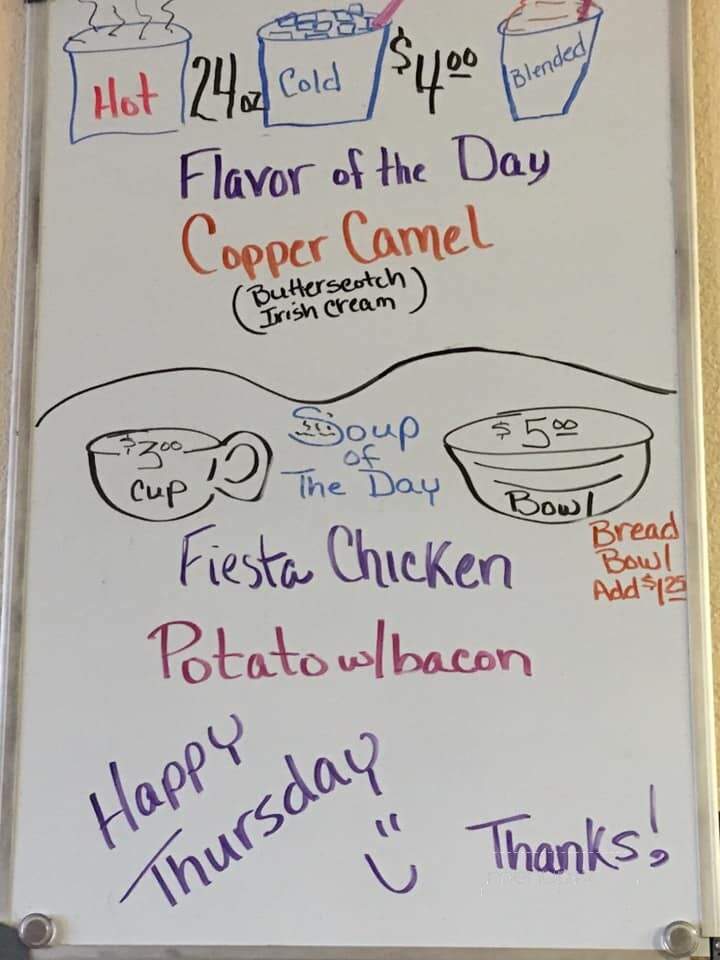 Hot 24oz Cold $4.00 Blended
Flavor of the Day
Copper Camel
(Butterscotch
Irish Cream)
Soup
of
The Day
$3.00
Cup
$5.00
Bowl
Bread
Bowl
Add $1.25
Fiesta Chicken
Potato w/bacon
Happy
Thursday
Thanks!